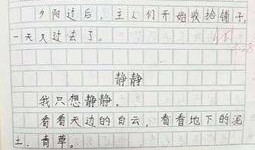 夕阳过后，主人们开始收拾铺子，
一天又过去了。
静静
我只想静静。
看看天边的白云，看看地下的泥
土、青草。